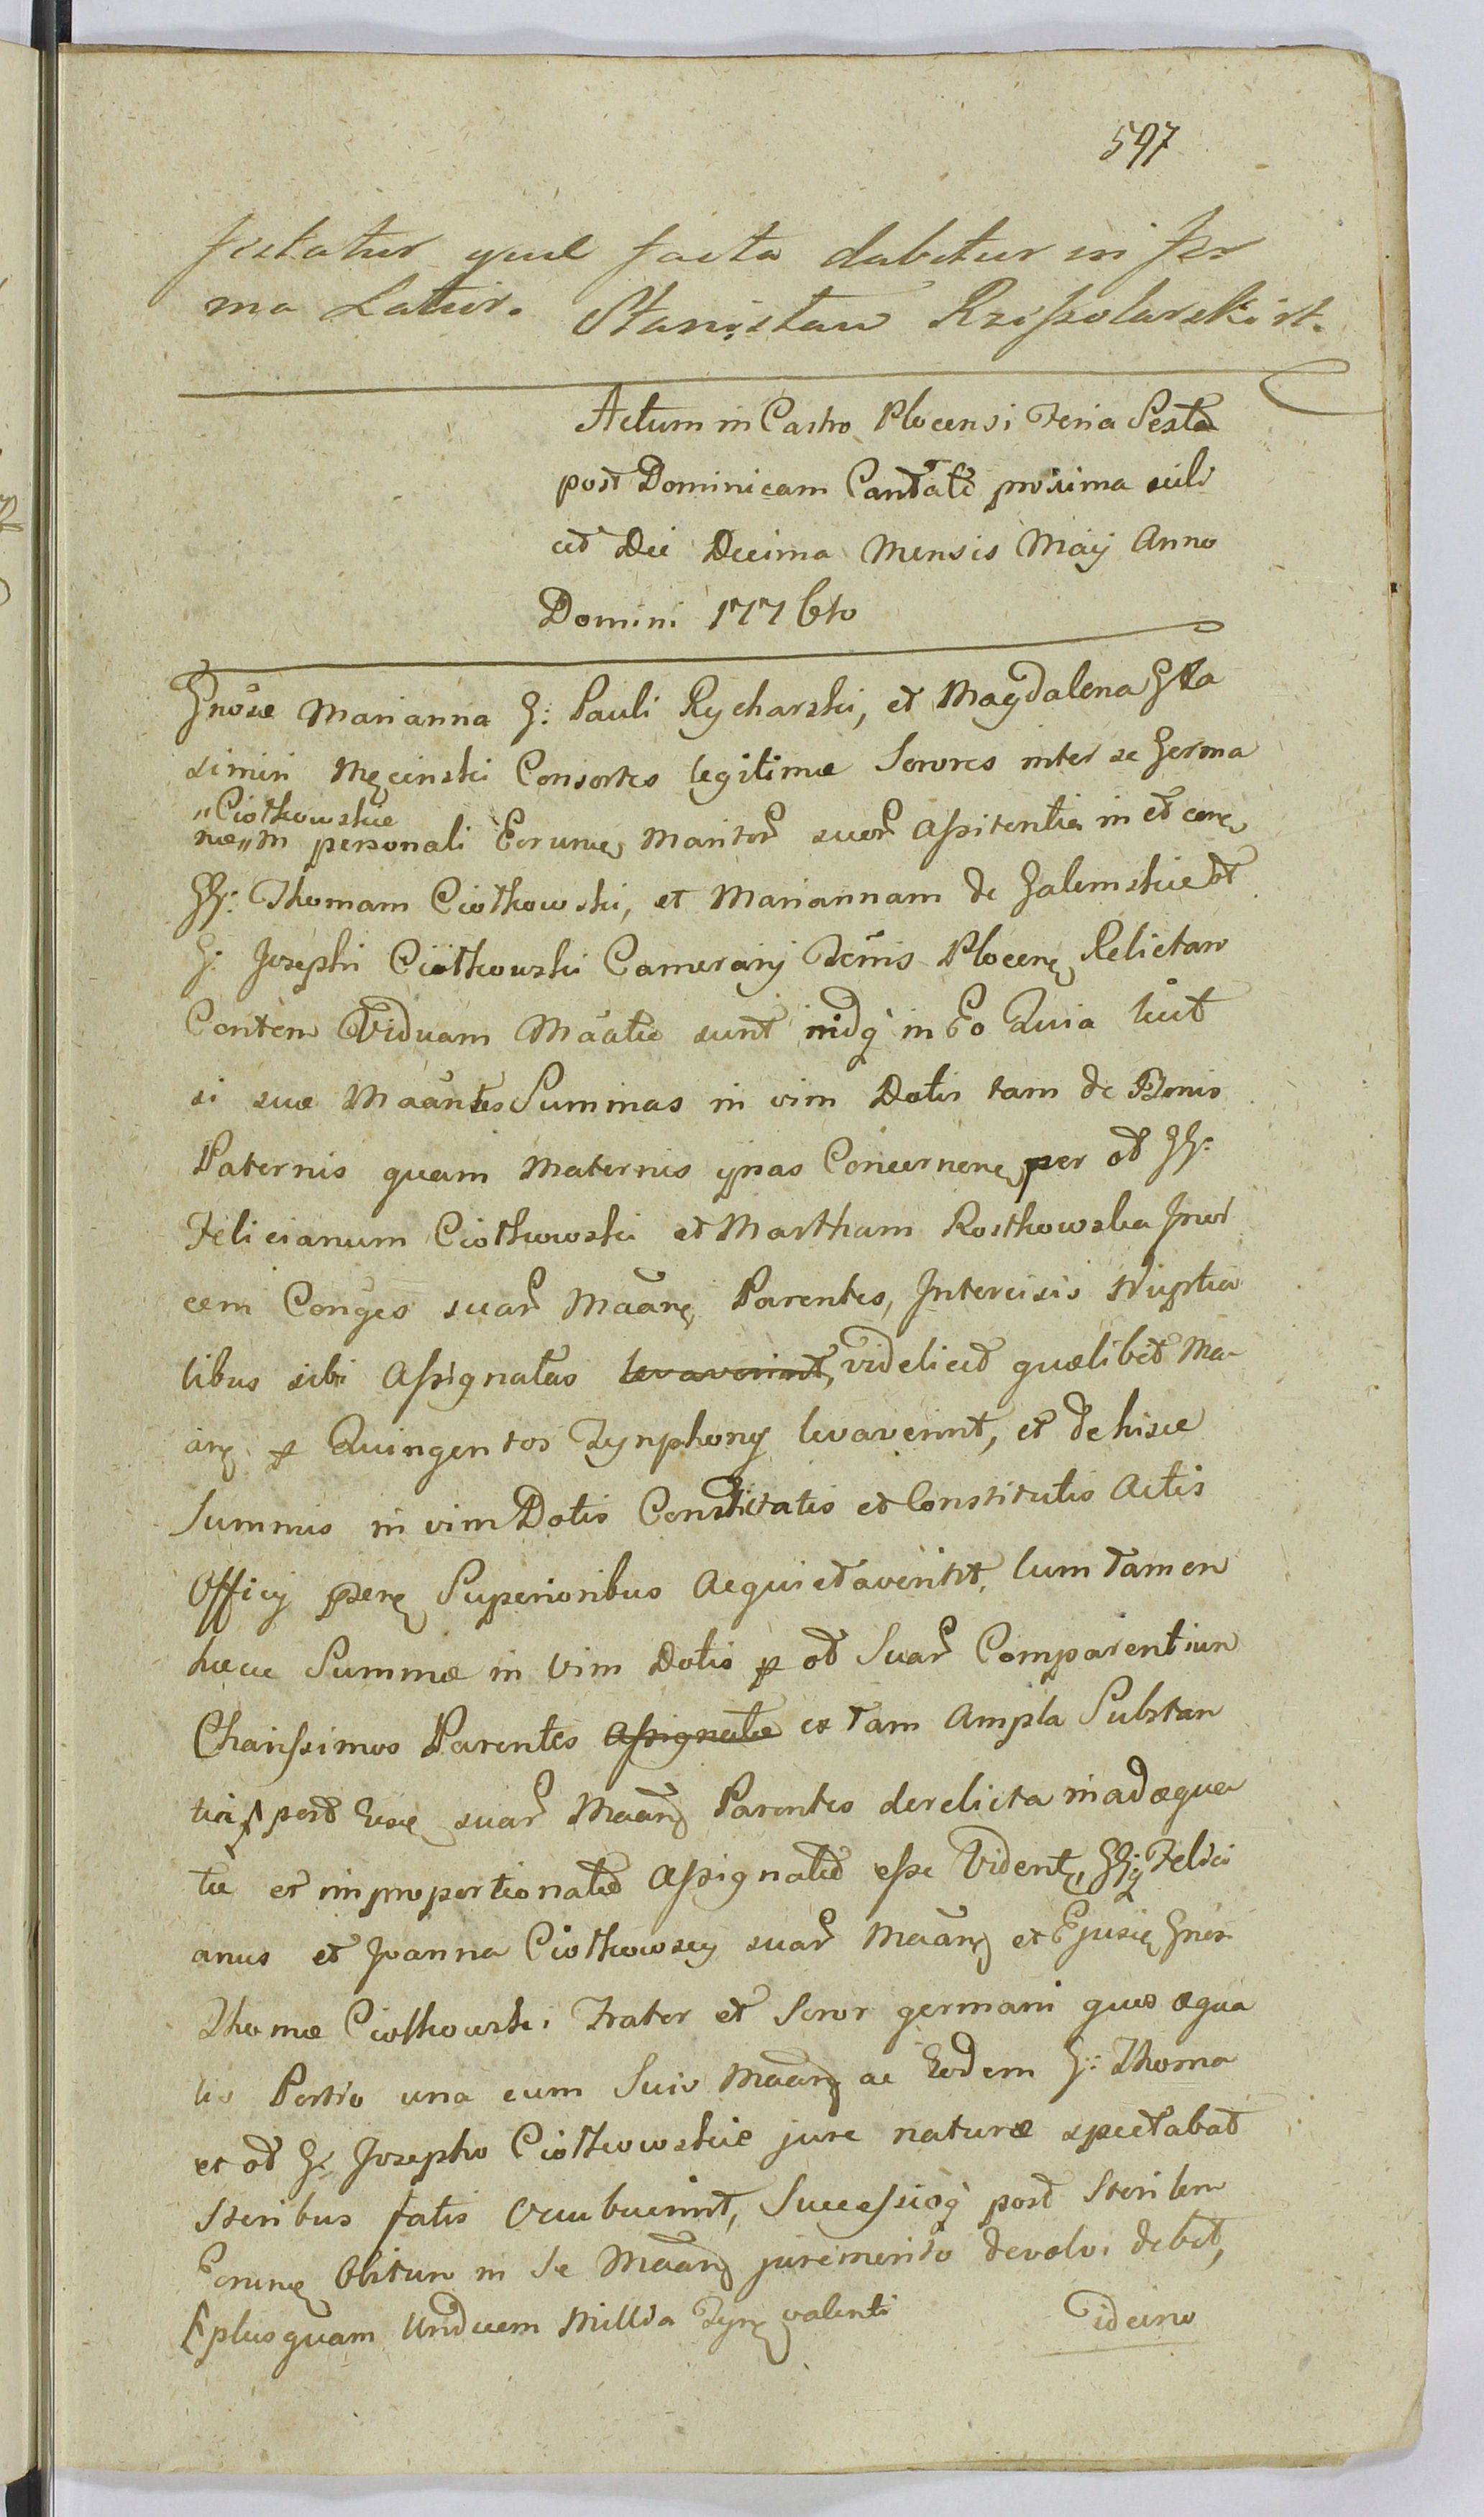 597
sertatur que facta dabitur in for
ma Latior. Stanisław
Actum in Castro Plocensi Feria Sexta
post Dominicam Cantate proxima scili
cet Die Decima Mensis Maij Anno
Domini 1776to
Gnosæ Marianna G: Pauli Rycharski, et Magdalena G Ca
simiri Męcinski Consortes legitimæ Sorores inter se Germa
„Ciołkowskie
næ„ in personali Eorum Maritor suor Assistentia in et cone
GG: Thomam Ciołkowski, et Mariannam de Zalemskie ot
G: Josephi Ciołkowski Camerarij Terris Plocen Relictam
Contem Viduam Maatæ sunt idq in Eo Quia licet
si suæ Maantes Summas in vim Dotis tam de Bonis
Paternis quam Maternis ipsas Concernen per ot GG:
Felicianum Ciołkowski et Martham Rostkowska Invi
cem Conges suar Maan Parentes, Intercisis Nuptia
libus sibi Assignatas levaverint, videlicet quælibet Ma
an p Quingentos Tynphonij levaverint, et de hisce
Summis in vim Dotis Constitutis et Constitutis Actis
Officij pen Superioribus Acquietaverint, Cum tamen
hæcce Summæ in vim Dotis p ot Suar Comparentium
Charissimos Parentes Assignatæ ex tam Ampla Substan
tia post Eosd suar Maan Parentes derelicta inadæqua
te et improportionate Assignatæ esse Vident, GGq Felici
anus et Joanna Ciołkowscy suar Maan et Ejusd Gnosi
Thomæ Ciołkowski Frater et Soror germani quos æqua
lis Portio una cum Suis Maan ac Eodem G: Thoma
et ot G: Josepho Ciołkowskie jure naturæ spectabat
Steribus fatis Occubuerint, Successioq post Sterilem
Eorum Obitum in Se Maan jure merito devolvi debet,
plusquam Undecem Millia Tyn valenti
idcirco